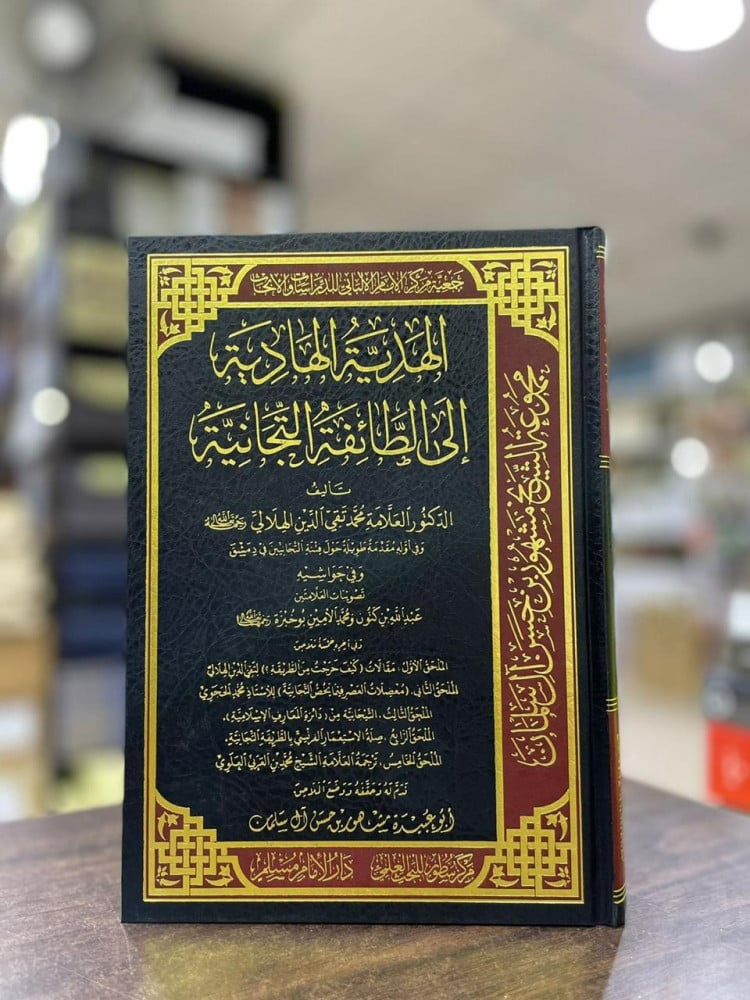 جمعية مركز الإمام الألباني للدراسات والأبحاث
الهَدِيَّةُ الهَادِيَة
إلى الطَّائِفَةِ التِّجَانِيَّةِ
تأليف
الدكتور العلّامة محمّد تقي الدين الهلالي رحمه الله
وفي أوله مقدمة طويلة حول فتنة التجانيين في دمشق
وفي حواشيه
تصويبات العلامتين
عبد الله بن كنون ومحمد الأمين بوخبزة رحمهما الله
وفي آخره خمسة ملاحق
الملحق الأول: مقالات (كيف خرجت من الطريقة؟) لتقي الدين الهلالي
الملحق الثاني: (معضلات العصر فيما يخص التجانية) للأستاذ محمد الحجوي
الملحق الثالث: التيجانية من (دائرة المعارف الإسلامية).
الملحق الرابع: صلة الاستعمار الفرنسي بالطريقة التجانية.
الملحق الخامس: ترجمة العلامة الشيخ محمد بن العربي العلوي
قدم له وحققه ووضع الملاحق
أبو عبيدة مشهور بن حسن آل سلمان
مجموعة الشيخ مشهور بن حسن آل سلمان
مركز سطور للبحث العلمي
دار الإمام مسلم